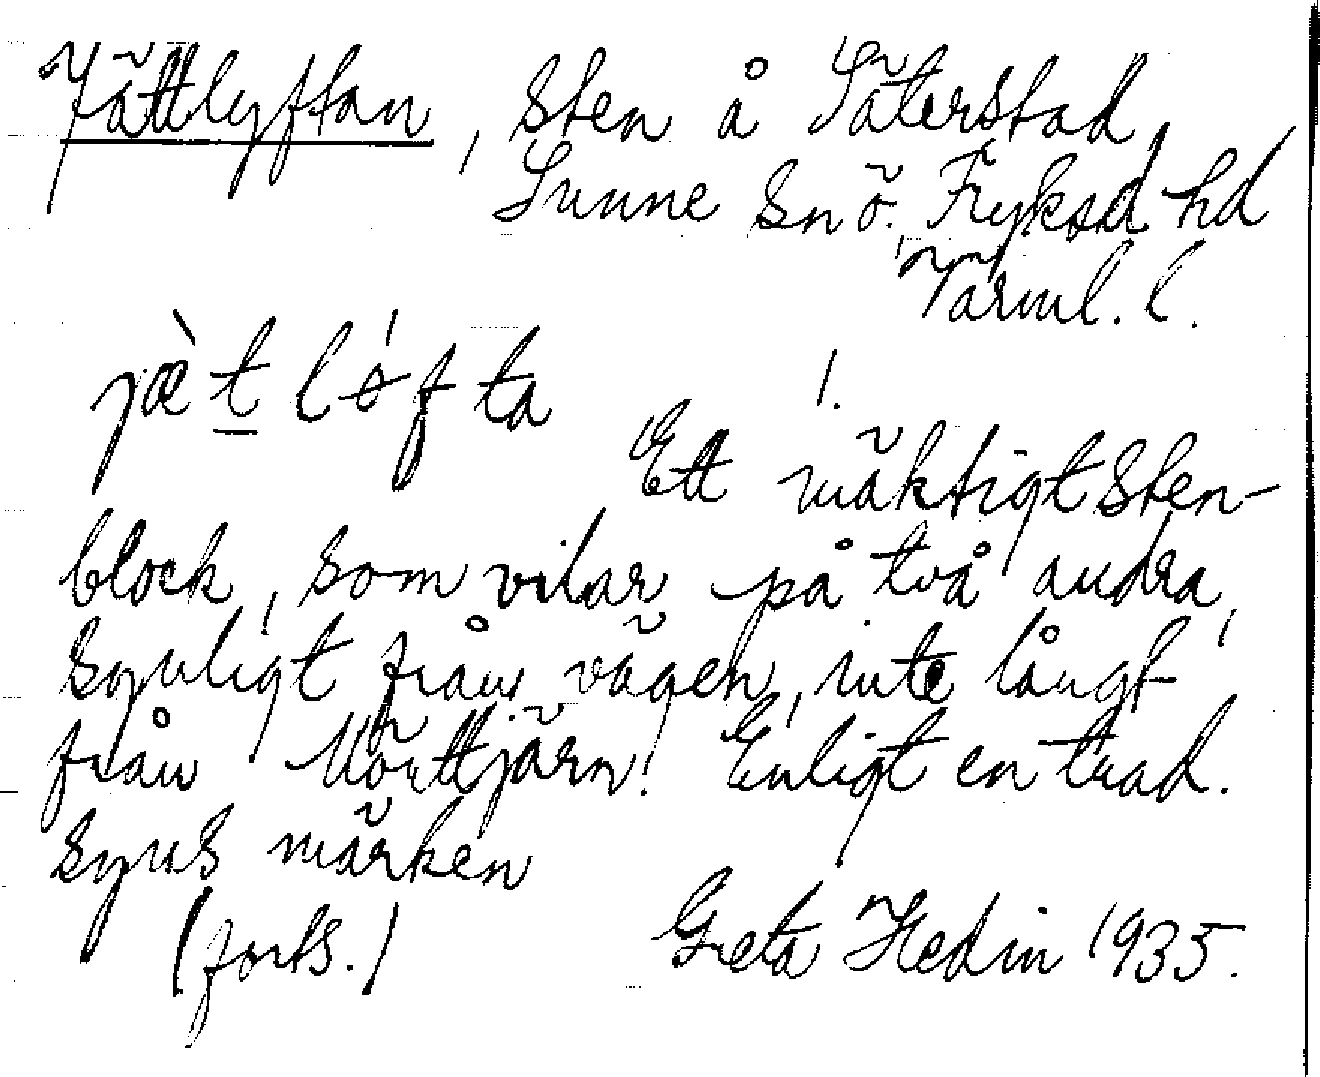 Jättlyftan, sten å Säterstad,
Sunne sn ö. Fryksd. hd
Värml. l.
jæ̀t løfta
1.
Ett mäktigt sten-
block, som vilar på två andra,
synligt från vägen, inte långt
från Mörttjärn. Enligt en trad.
syns märken
(forts.) Greta Hedin 1935.